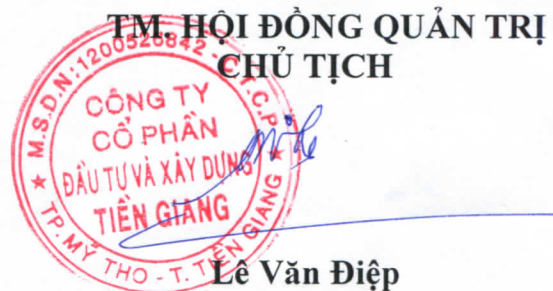 TM. HỘI ĐỒNG QUẢN TRỊ
CHỦ TỊCH
M.S.D.N:1200526842 - C.T.C.P
CÔNG TY
CỔ PHẦN
ĐẦU TƯ VÀ XÂY DỰNG
TIỀN GIANG
TP.MỸ THO - T. TIỀN GIANG
Lê Văn Điệp